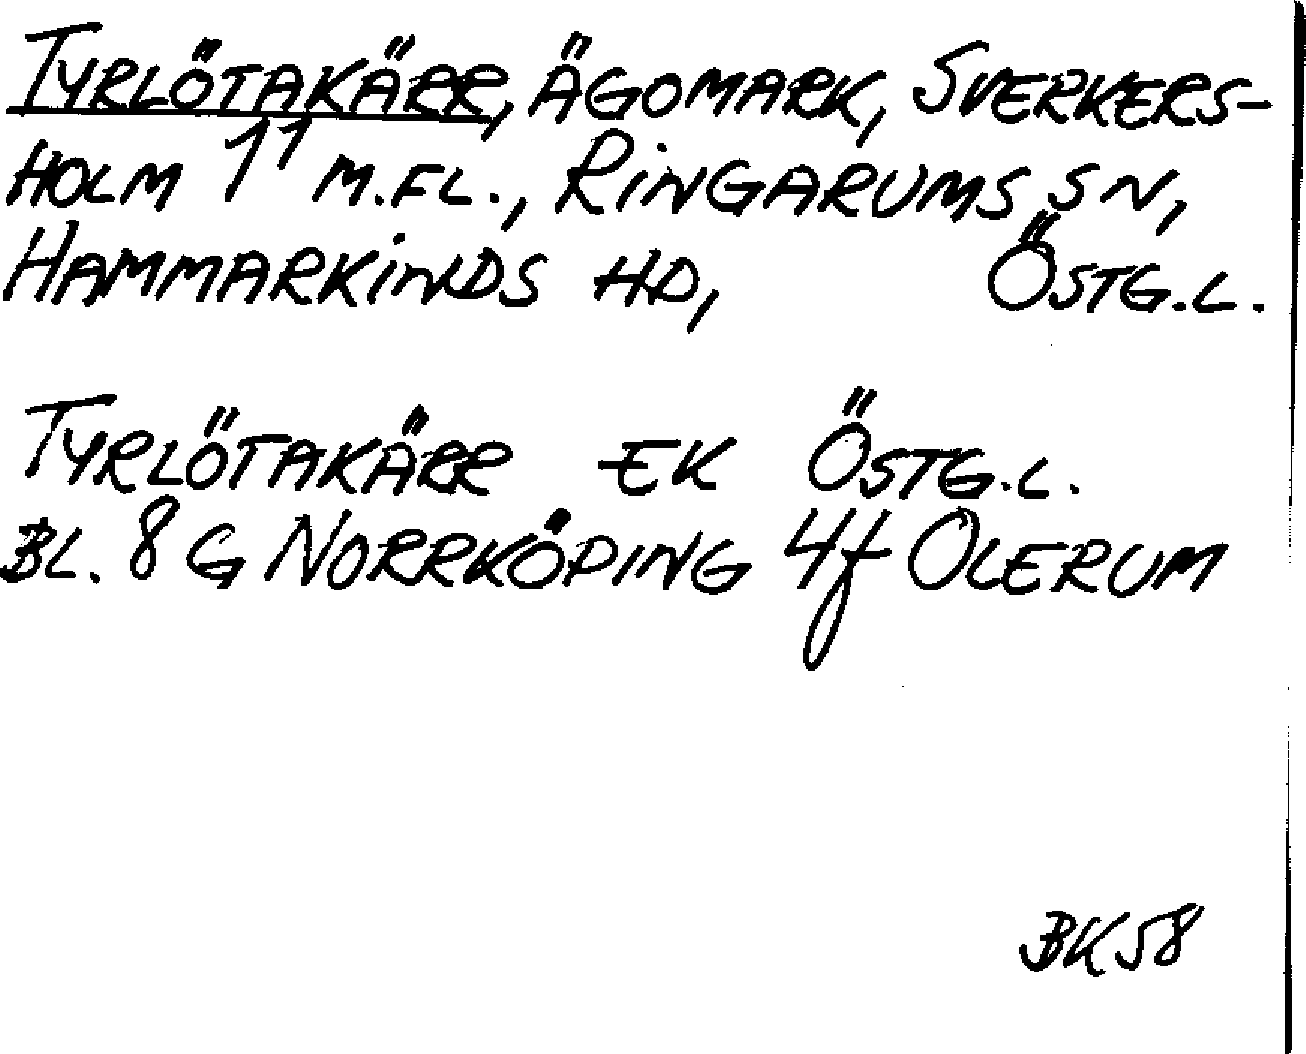 TYRLÖTAKÄRR, ÄGOMARK, SVERKERS-
HOLM 1¹ M.FL., RINGARUMS SN,
HAMMARKINDS HD, ÖSTG.L.
TYRLÖTAKÄRR EK ÖSTG.L.
BL. 8 G NORRKÖPING 4f OLERUM
BK 58